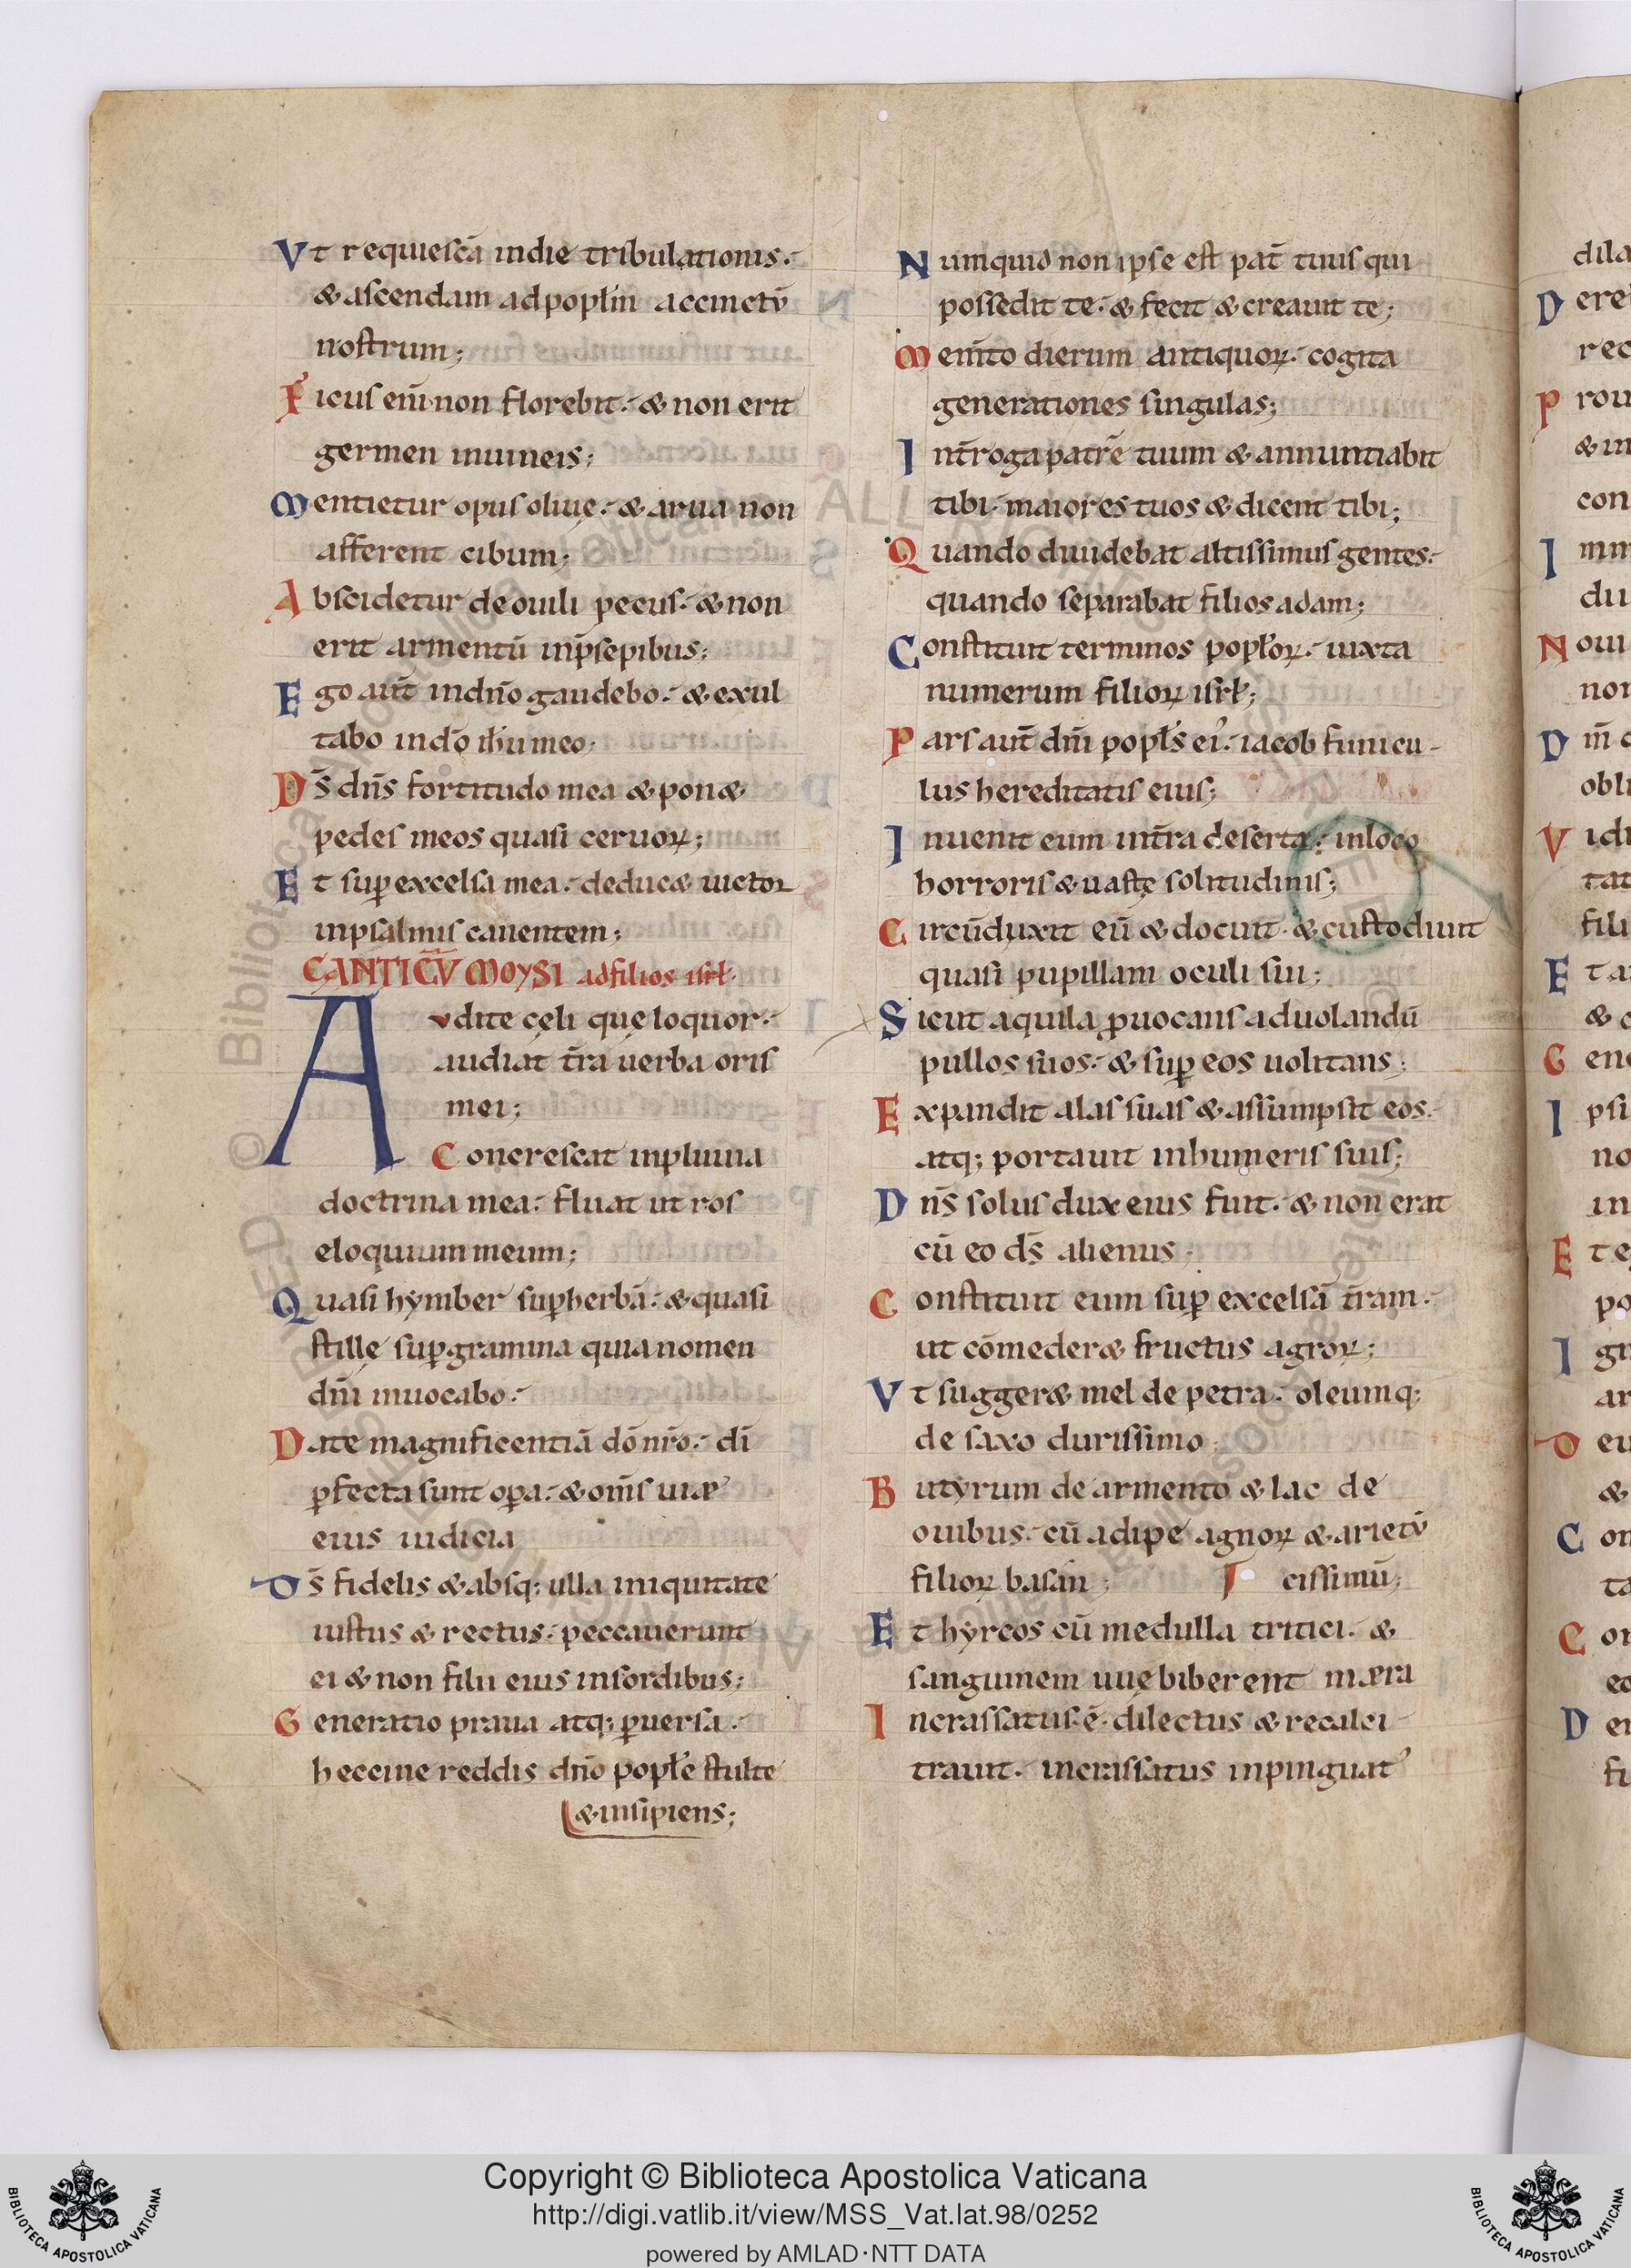 Vt requiescā indie tribulationis.
& ascendam adpopłm accinctū
nostrum;
Ficus eni non florebit. & non erit
germen inuineis;
Mentietur opus oliuę. & arua non
afferent cibum;
Abscidetur deouili pecus. & non
erit armentū inp̄sepibus;
Ego aut̄ indn̄o gaudebo. & exul
tabo indō ih̄u meo.
Ds̄ dn̄s fortitudo mea & pon&
pedes meos quasi ceruoꝝ;
Et sup excelsa mea. deduc& uictor
inpsalmis canentem;
CANTICV̄ MOYSI adfilios isrł.
Audite cęli quę loquor.
audiat t̄ra uerba oris
mei;
Concrescat inpluuia
doctrina mea. fluat ut ros
eloquium meum;
Quasi hymber suꝑherbā. & quasi
stillę suꝑgramina quia nomen
dn̄i inuocabo.
Date magnificentiā dō nr̄o. dī
ꝑfecta sunt oꝑa. & om̄s uiæ
eius iudicia
Ds̄ fidelis & absq; ulla iniquitate
iustus & rectus. peccauerunt
ei & non filii eius insordibus;
Generatio praua atq; ꝑuersa.
heccine reddis dn̄o popłe stulte
& insipiens;
Numquid non ipse est pat̄ tuus qui
possedit te. & fecit & creauit te;
Mem̄to dierum antiquoꝝ. cogita
generationes singulas;
Int̄roga patrē tuum & annuntiabit
tibi. maiores tuos & dicent tibi;
Quando diuidebat altissimus gentes.
quando separabat filios adam;
Constituit terminos popłoꝝ. iuxta
numerum filioꝝ isrł;
Pars aut̄ dn̄i popłs ei'. iacob funicu-
lus hereditatis eius;
Inuenit eum int̄ra deserta. inloco
horroris & uastę solitudinis;
Circūduxit eū & docuit. & custodiuit
quasi pupillam oculi sui;
Sicut aquila ꝓuocans aduolandū
pullos suos. & suꝑ eos uolitans;
Expandit alas suas & assumpsit eos.
atq; portauit inhumeris suis;
Dn̄s solus dux eius fuit. & non erat
cū eo ds̄ alienus;
Constituit eum suꝑ excelsā t̄ram.
ut cōmeder& fructus agroꝝ;
Vt sugger& mel de petra. oleumq;
de saxo durissimo;
Butyrum de armento & lac de
ouibus. cū adipe agnoꝝ & arietū
filioꝝ basan; cissimū;
Et hyrcos cū medulla tritici. &
sanguinem uuę biberent mera
Incrassatus ē. dilectus & recalci
trauit. incrassatus inpinguat'
dila
Dere
rec
Prou
& in
con
Imm
du
Noui
non
Dn̄
obli
Vidi
tat
fili
Et a
& c
Gene
Ipsi
no
in
Et e
po
Ign
ar
Deu
&
Con
ta
Con
eo
De
fi
Copyright © Biblioteca Apostolica Vaticana
http://digi.vatlib.it/view/MSS_Vat.lat.98/0252
powered by AMLAD·NTT DATA
BIBLIOTECA APOSTOLICA VATICANA
BIBLIOTECA APOSTOLICA VATICANA